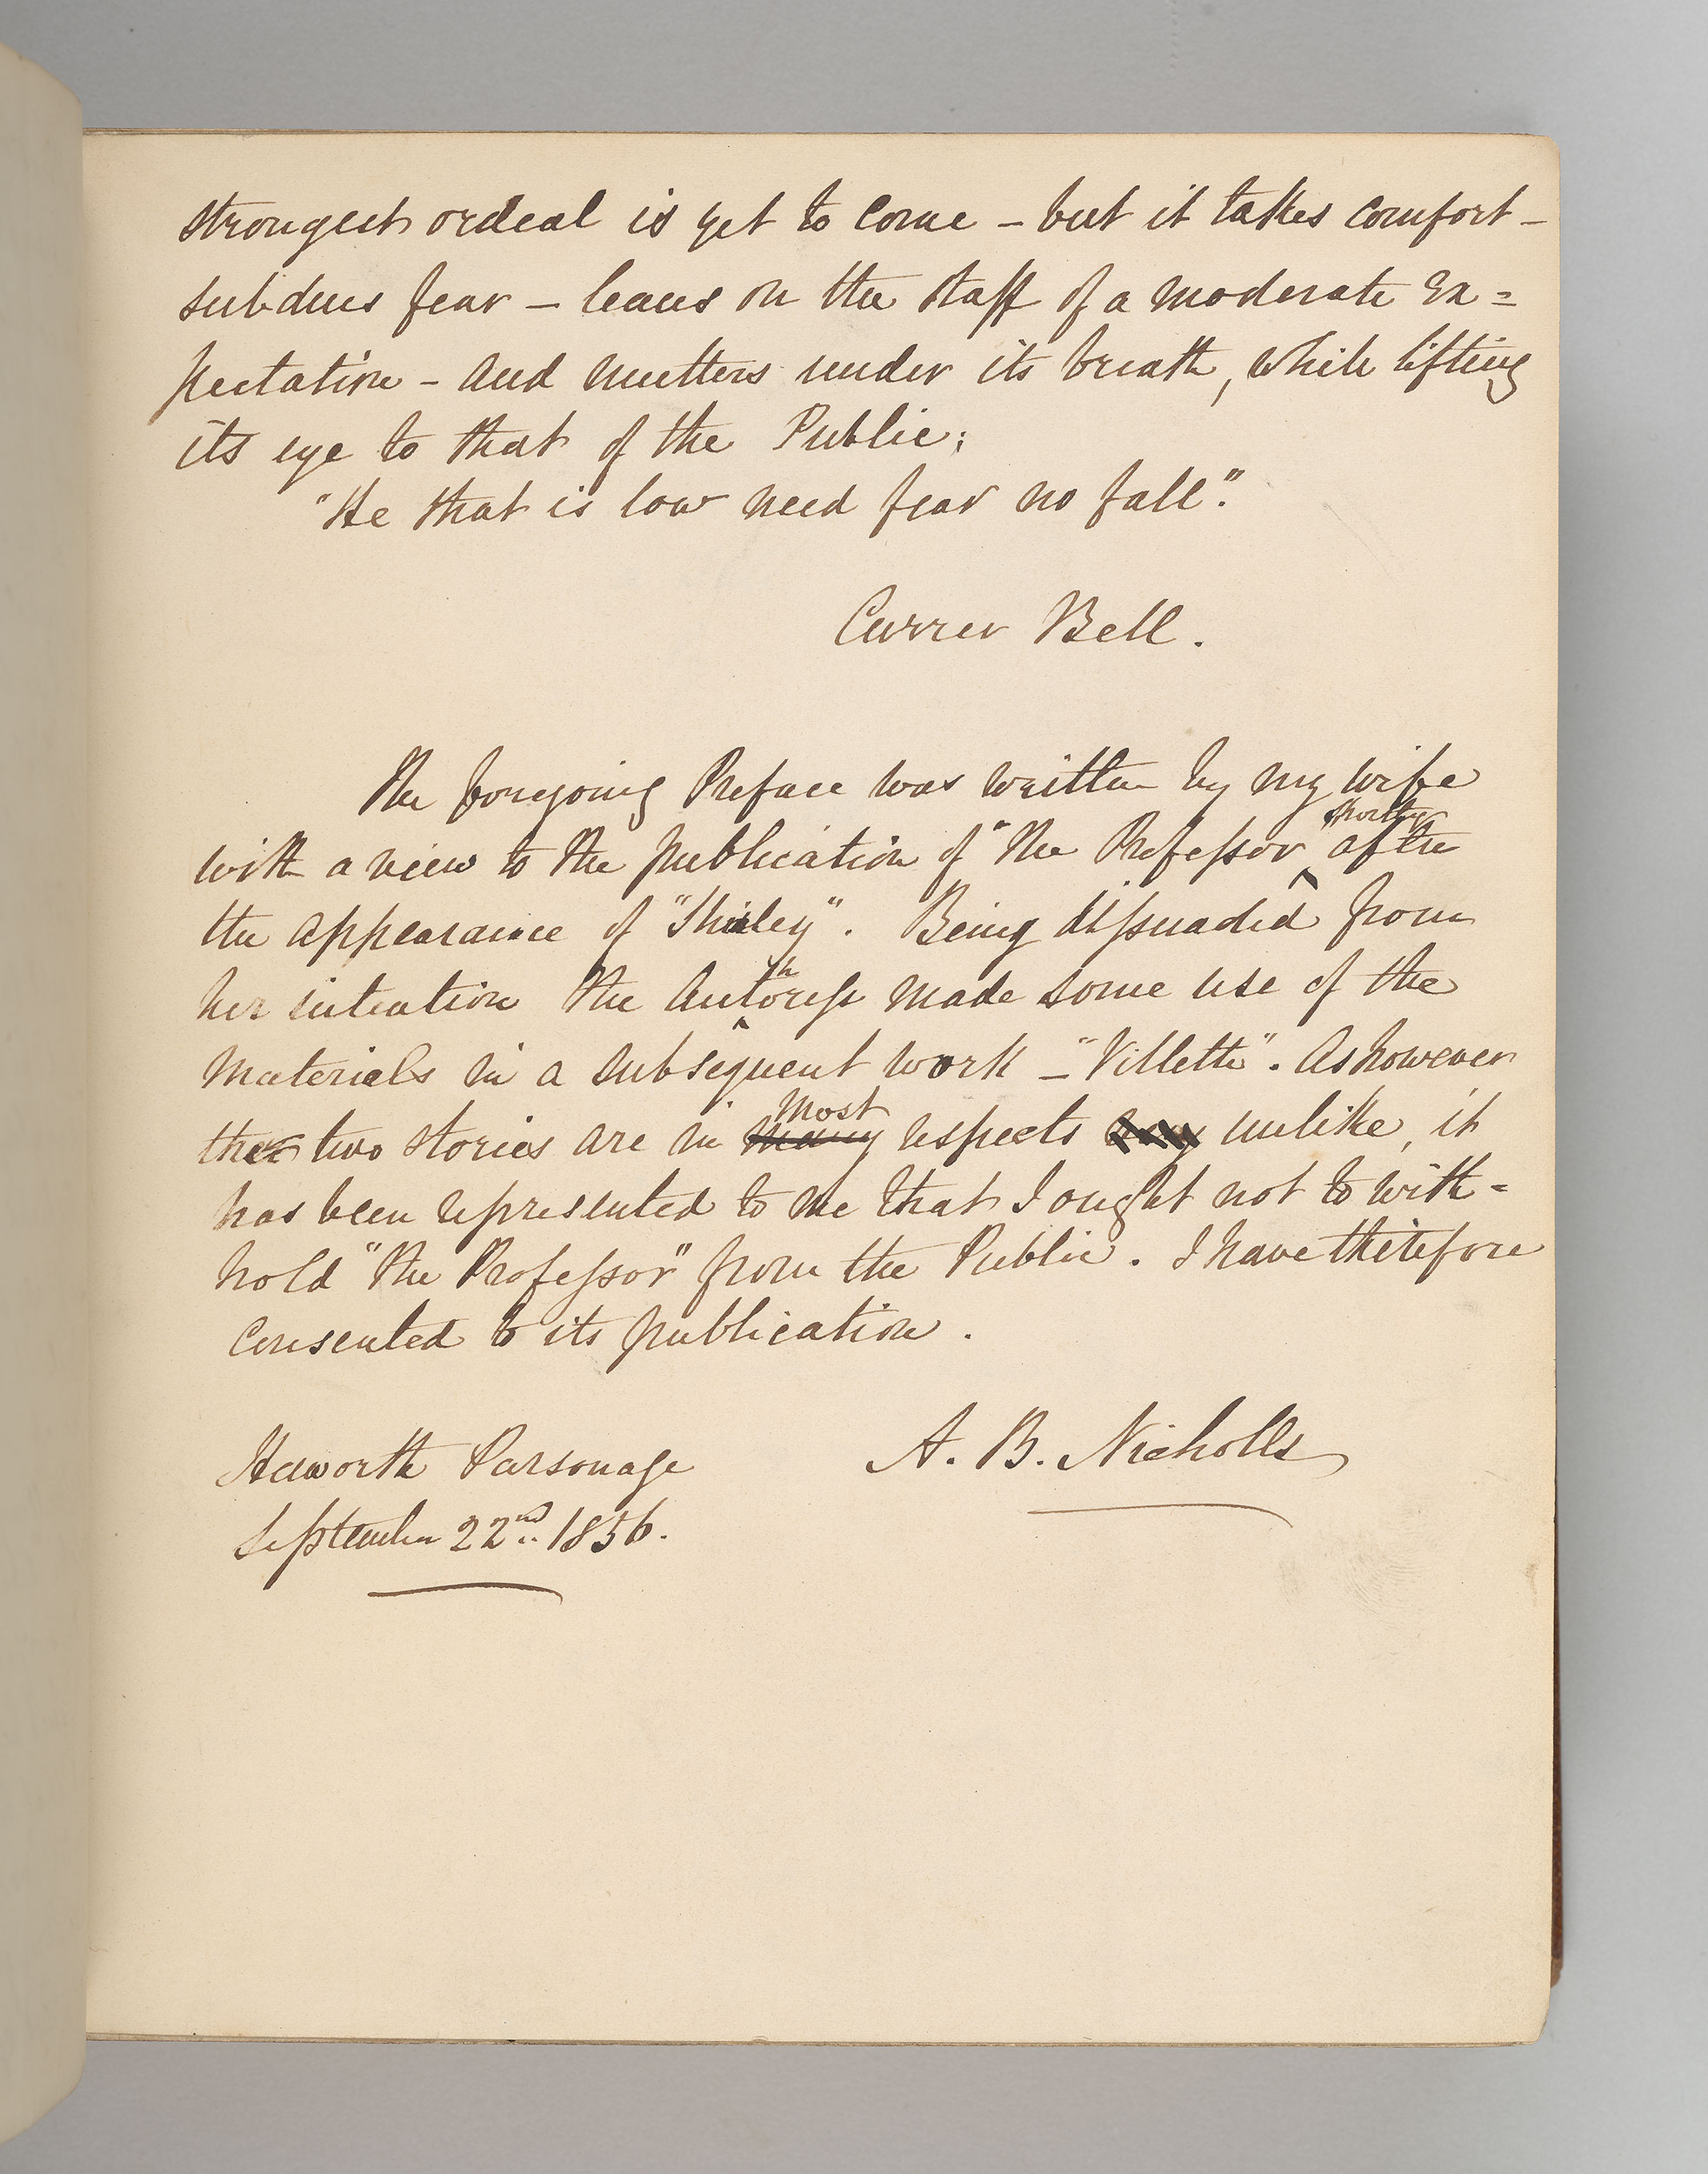 strongest ordeal is yet to come – but it takes comfort –
subdues fear – leans on the staff of a moderate ex =
pectation – and mutters under its breath, while lifting
its eye to that of the Public;
"He that is low need fear no fall".
Currer Bell.
The foregoing Preface was written by my wife
with a view to the publication of "The Professor shortly after
the appearance of "Shirley". Being dissuaded from
her intention the Authoress made some use of the
materials in a subsequent work – "Villette". As however
these two stories are in many most respects unlike, it
has been represented to me that I ought not to with =
hold "The Professor" from the Public. I have therefore
consented to its publication.
A. B. Nicholls
Haworth Parsonage
September 22nd. 1856.